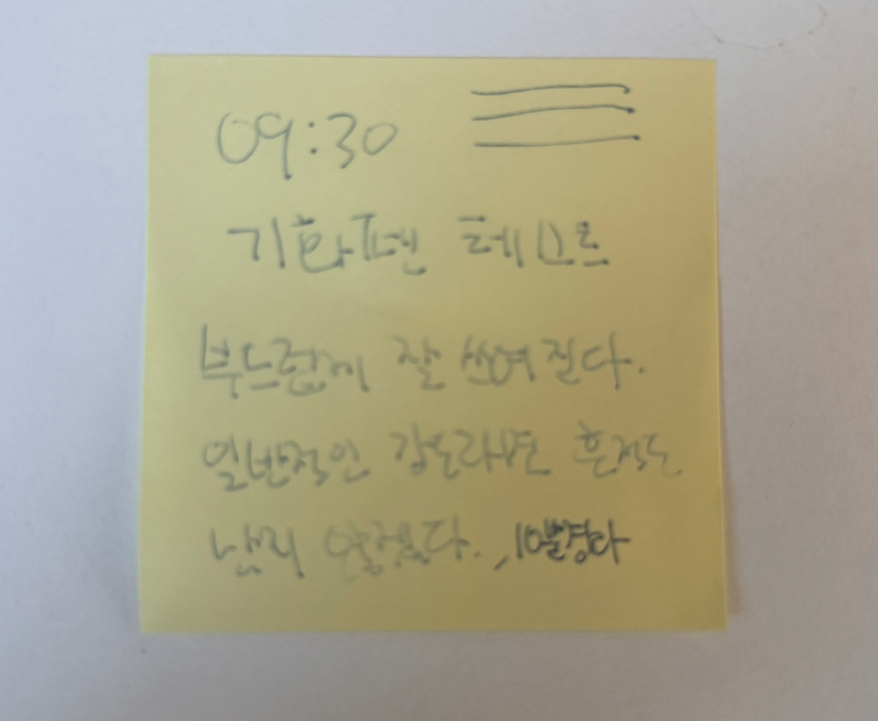 09:30
기화펜 테스트
부드럽게 잘 쓰여진다.
일반적인 강도라면 흔적도
남지 않겠다. ,1일경과